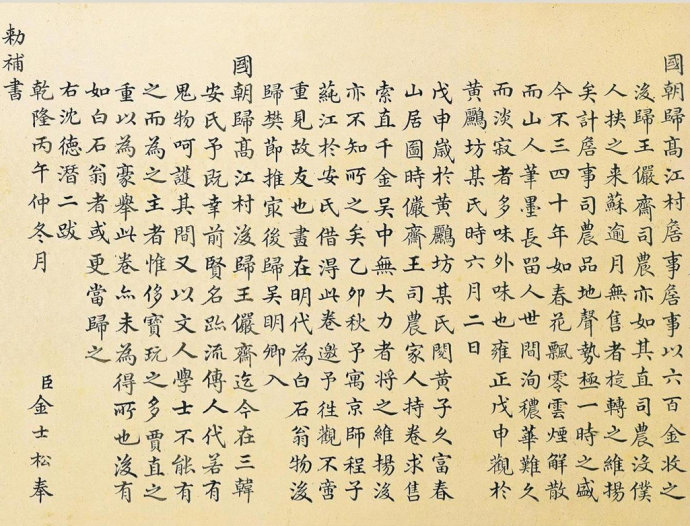 國朝歸髙江村詹事詹事以六百金收之
後歸王儼齋司農亦如其直司農没僕
人挟之来蘇逾月無售者旋轉之維揚
矣計詹事司農品地聲勢極一時之盛
今不三四十年如春花飄零雲煙解散
而山人筆墨長留人世間洵穠華難久
而淡寂者多味外味也雍正戊申觀於
黄鸝坊某氏時六月二日
戊申嵗於黄鸝坊某氏閱黄子久富春
山居圖時儼齋王司農家人持卷求售
索直千金吴中無大力者將之維揚後
亦不知所之矣乙卯秋予寓京師程子
蒓江於安氏借得此卷邀予徃觀不啻
重見故友也畫在明代為白石翁物後
歸樊節推㝡後歸吴明卿入
國朝歸髙江村後歸王儼齋迄今在三韓
安氏予既幸前賢名蹟流傳人代若有
鬼物呵護其間又以文人學士不能有
之而為之主者惟侈寳玩之多賈直之
重以為豪舉此卷亦未為得所也後有
如白石翁者或更當歸之
右沈德潛二跋
乾隆丙午仲冬月 臣金士松奉
勅補書